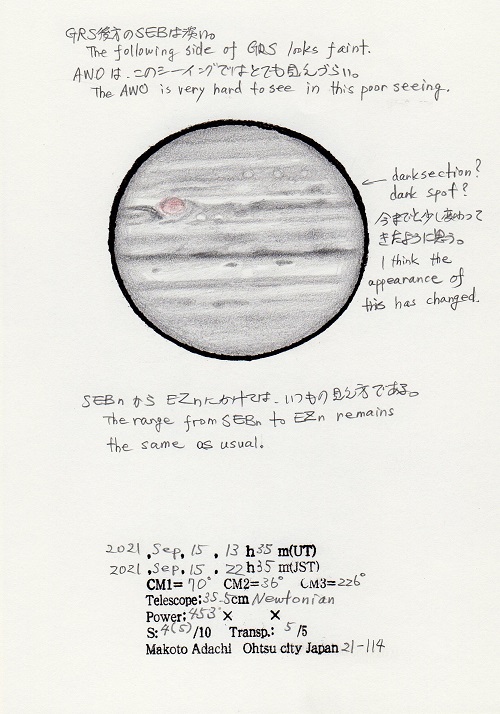 GRS後方のSEBは淡い。
The following side of GRS looks faint.
AWOは、このシーイングではとても見えづらい。
The AWO is very hard to see in this poor seeing.
dark section?
dark spot?
今までと少しかわって
きたように思う。
I think the
appearance of
this has changed.
SEBnからEZnにかけては、いつもの見え方である。
The range from SEBn to EZn remains
the same as usual.
2021 ,Sep, 15 , 13 h 35 m(UT)
2021 ,Sep, 15 , 22 h 35 m(JST)
CM1= 70° CM2= 36° CM3= 226°
Telescope: 35.5cm Newtonian
Power: 453× ×
S: 4(5)/10 Transp.: 5 /5
Makoto Adachi Ohtsu city Japan 21-114